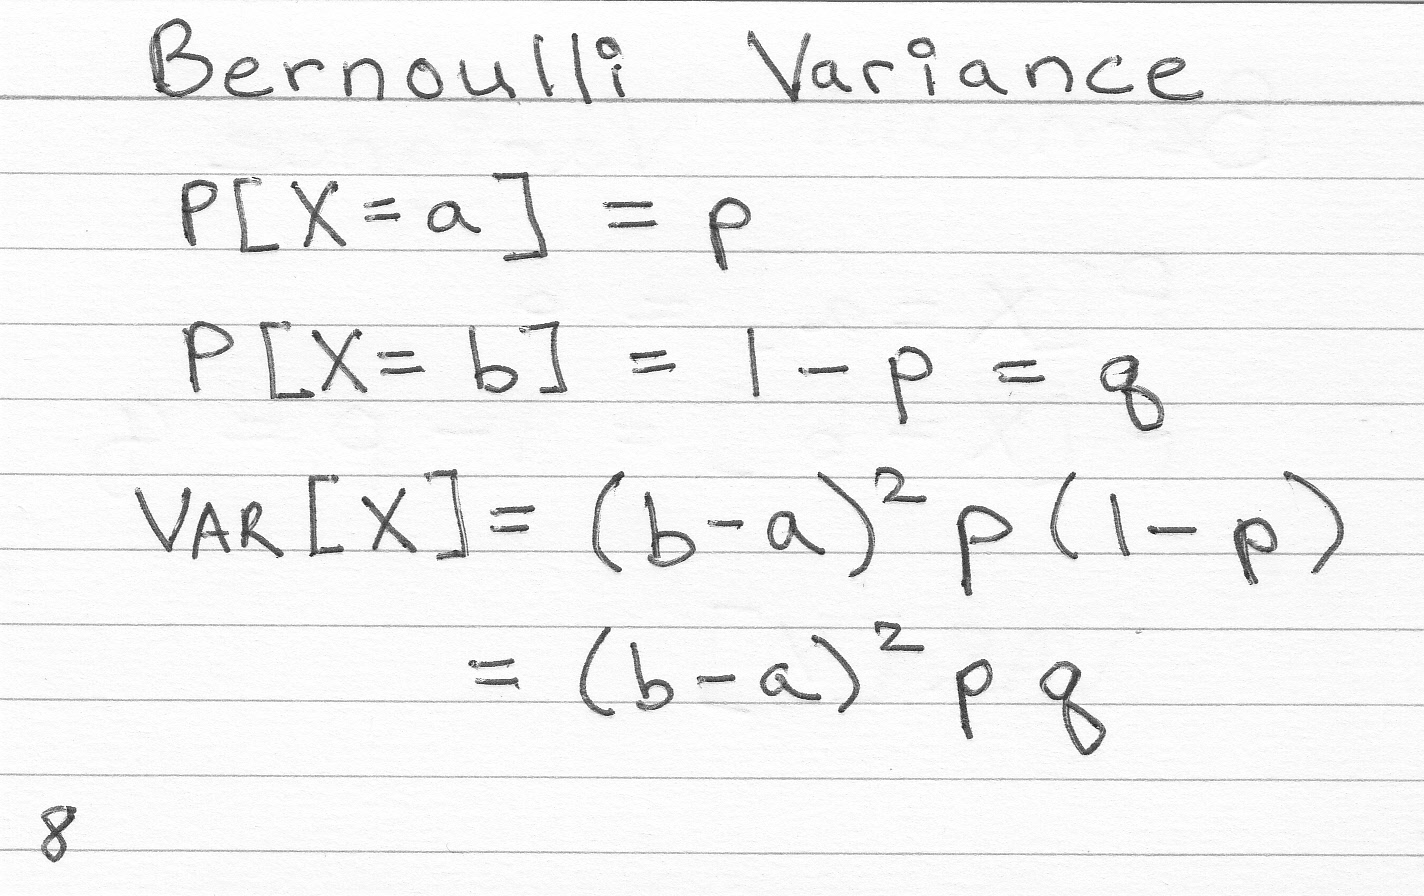 Bernoulli Variance
P[X=a] = p
P[X=b] = 1-p = q
VAR[X] = (b-a)² p(1-p)
= (b-a)² p q
8